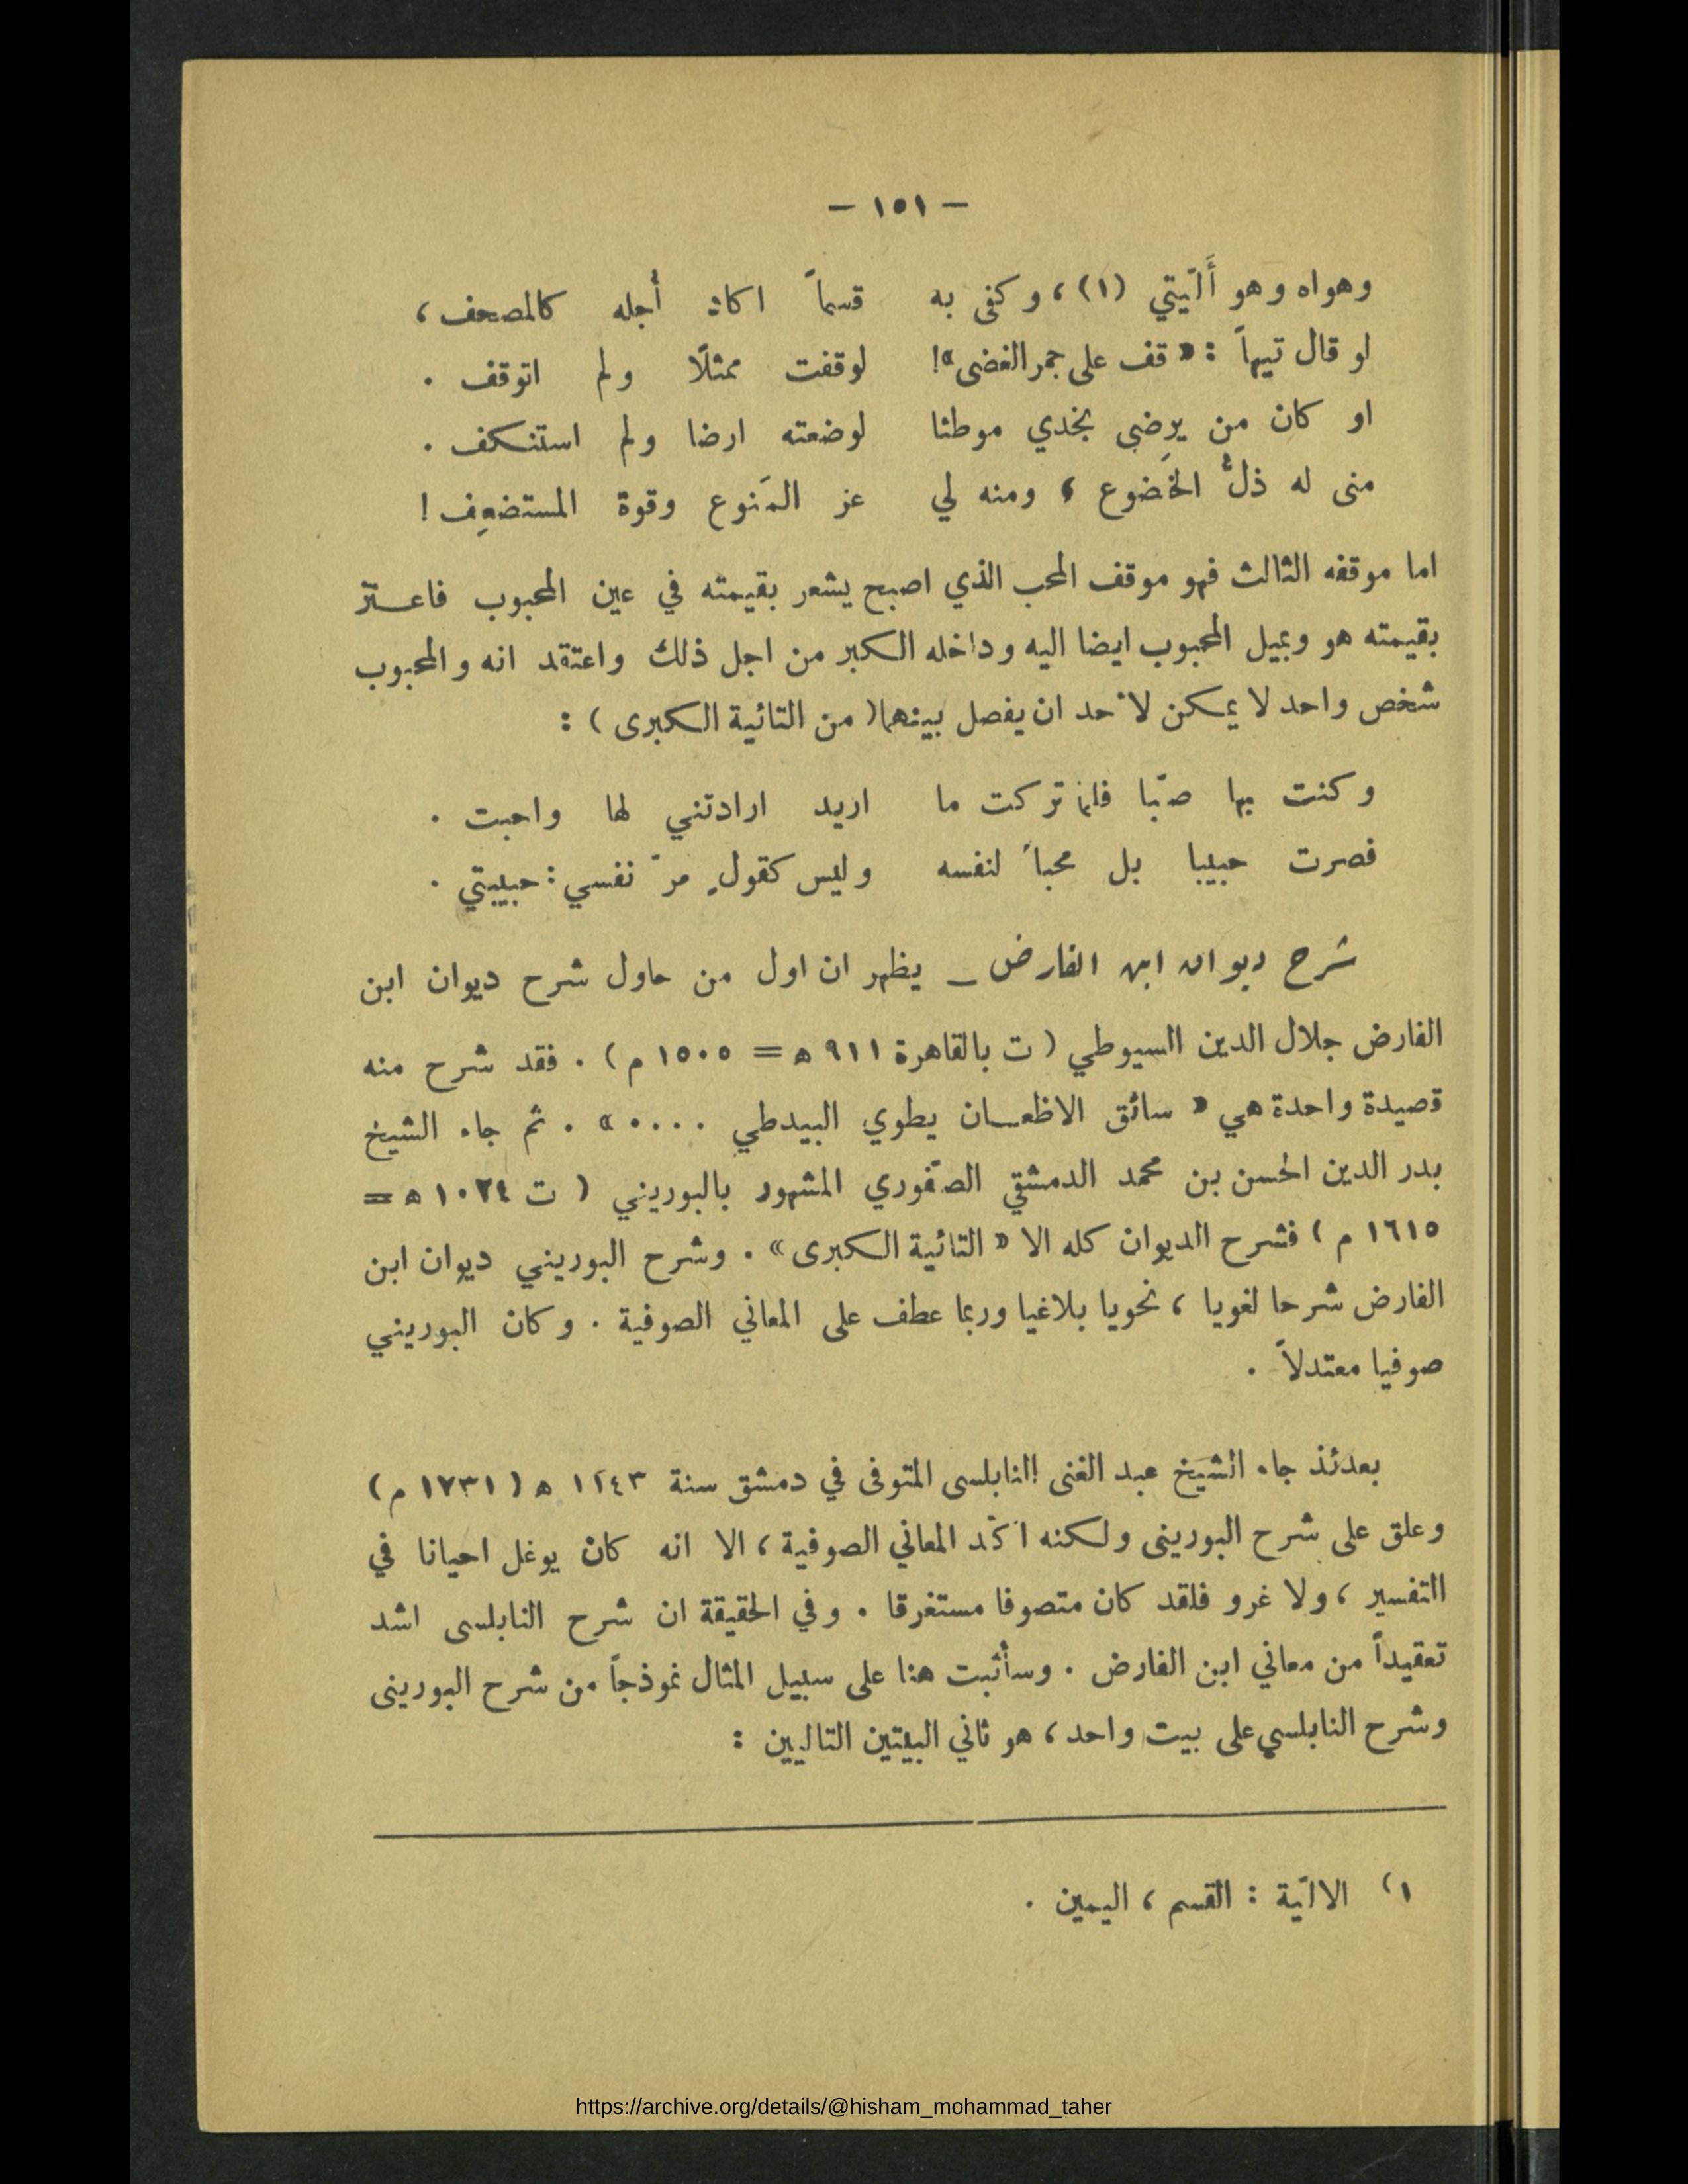 — ١٥١ —
وهواه وهو أَلّيتي (١)، وكفى به قسماً اكاد أجله كالمصحف،
لو قال تيهاً : « قف على جمر الغضى»! لوقفت ممثلًا ولم اتوقف .
او كان من يرضى بخدي موطئا لوضعته ارضا ولم استنكف .
منى له ذلُّ الخَضوع ، ومنه لي عز المَنوع وقوة المستضعِف !
اما موقفه الثالث فهو موقف المحب الذي اصبح يشعر بقيمته في عين المحبوب فاعتز
بقيمته هو وبميل المحبوب ايضا اليه وداخله الكبر من اجل ذلك واعتقد انه والمحبوب
شخص واحد لا يمكن لأحد ان يفصل بينهما ( من التائية الكبرى ) :
وكنت بها صبّا فلما تركت ما اريد ارادتني لها واحبت .
فصرت حبيبا بل محباً لنفسه وليس كقولٍ مرّ نفسي : حبيبتي .
شرح ديوان ابن الفارض _ يظهر ان اول من حاول شرح ديوان ابن
الفارض جلال الدين السيوطي ( ت بالقاهرة ٩١١ ه = ١٥٠٥ م ) . فقد شرح منه
قصيدة واحدة هي « سائق الاظعان يطوي البيدطي .... » . ثم جاء الشيخ
بدر الدين الحسن بن محمد الدمشقي الصفّوري المشهور بالبوريني ( ت ١٠٢٤ ه =
١٦١٥ م ) فشرح الديوان كله الا « التائية الكبرى» . وشرح البوريني ديوان ابن
الفارض شرحا لغويا ، نحويا بلاغيا وربما عطف على المعاني الصوفية . وكان البوريني
صوفيا معتدلاً .
بعدئذ جاء الشيخ عبد الغنى النابلسى المتوفى في دمشق سنة ١١٤٣ ه ( ١٧٣١ م )
وعلق على شرح البورينى ولكنه اكّد المعاني الصوفية ، الا انه كان يوغل احيانا في
التفسير ، ولا غرو فلقد كان متصوفا مستغرقا . وفي الحقيقة ان شرح النابلسى اشد
تعقيداً من معاني ابن الفارض . وسأثبت هنا على سبيل المثال نموذجاً من شرح البورينى
وشرح النابلسي على بيت واحد ، هو ثاني البيتين التاليين :
١) الالّية : القسم ، اليمين .
https://archive.org/details/@hisham_mohammad_taher